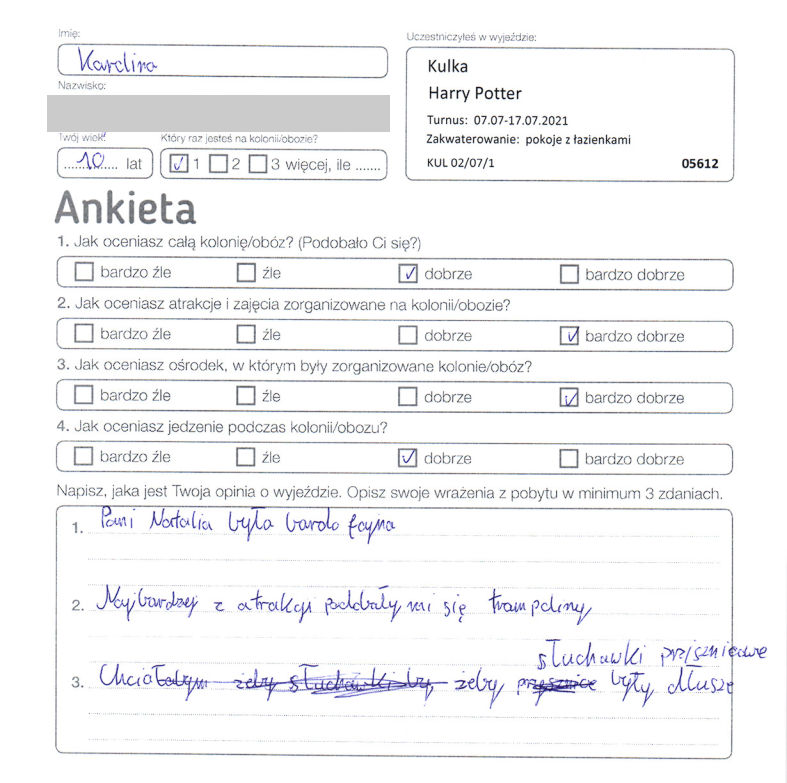 Imię:
Karolina
Nazwisko:
Twój wiek:
10 lat
Który raz jesteś na kolonii/obozie?
1 2 3 więcej, ile .......
Uczestniczyłeś w wyjeździe:
Kulka
Harry Potter
Turnus: 07.07-17.07.2021
Zakwaterowanie: pokoje z łazienkami
KUL 02/07/1 05612
Ankieta
1. Jak oceniasz całą kolonię/obóz? (Podobało Ci się?)
bardzo źle źle dobrze bardzo dobrze
2. Jak oceniasz atrakcje i zajęcia zorganizowane na kolonii/obozie?
bardzo źle źle dobrze bardzo dobrze
3. Jak oceniasz ośrodek, w którym były zorganizowane kolonie/obóz?
bardzo źle źle dobrze bardzo dobrze
4. Jak oceniasz jedzenie podczas kolonii/obozu?
bardzo źle źle dobrze bardzo dobrze
Napisz, jaka jest Twoja opinia o wyjeździe. Opisz swoje wrażenia z pobytu w minimum 3 zdaniach.
1. Pani Natalia była bardo fajna
2. Najbardzej z atrakcji poddbały mi się trampoliny
słuchawki prysznicowe
3. Chciałabym żeby słuchawki by żeby prysznice były dłusze